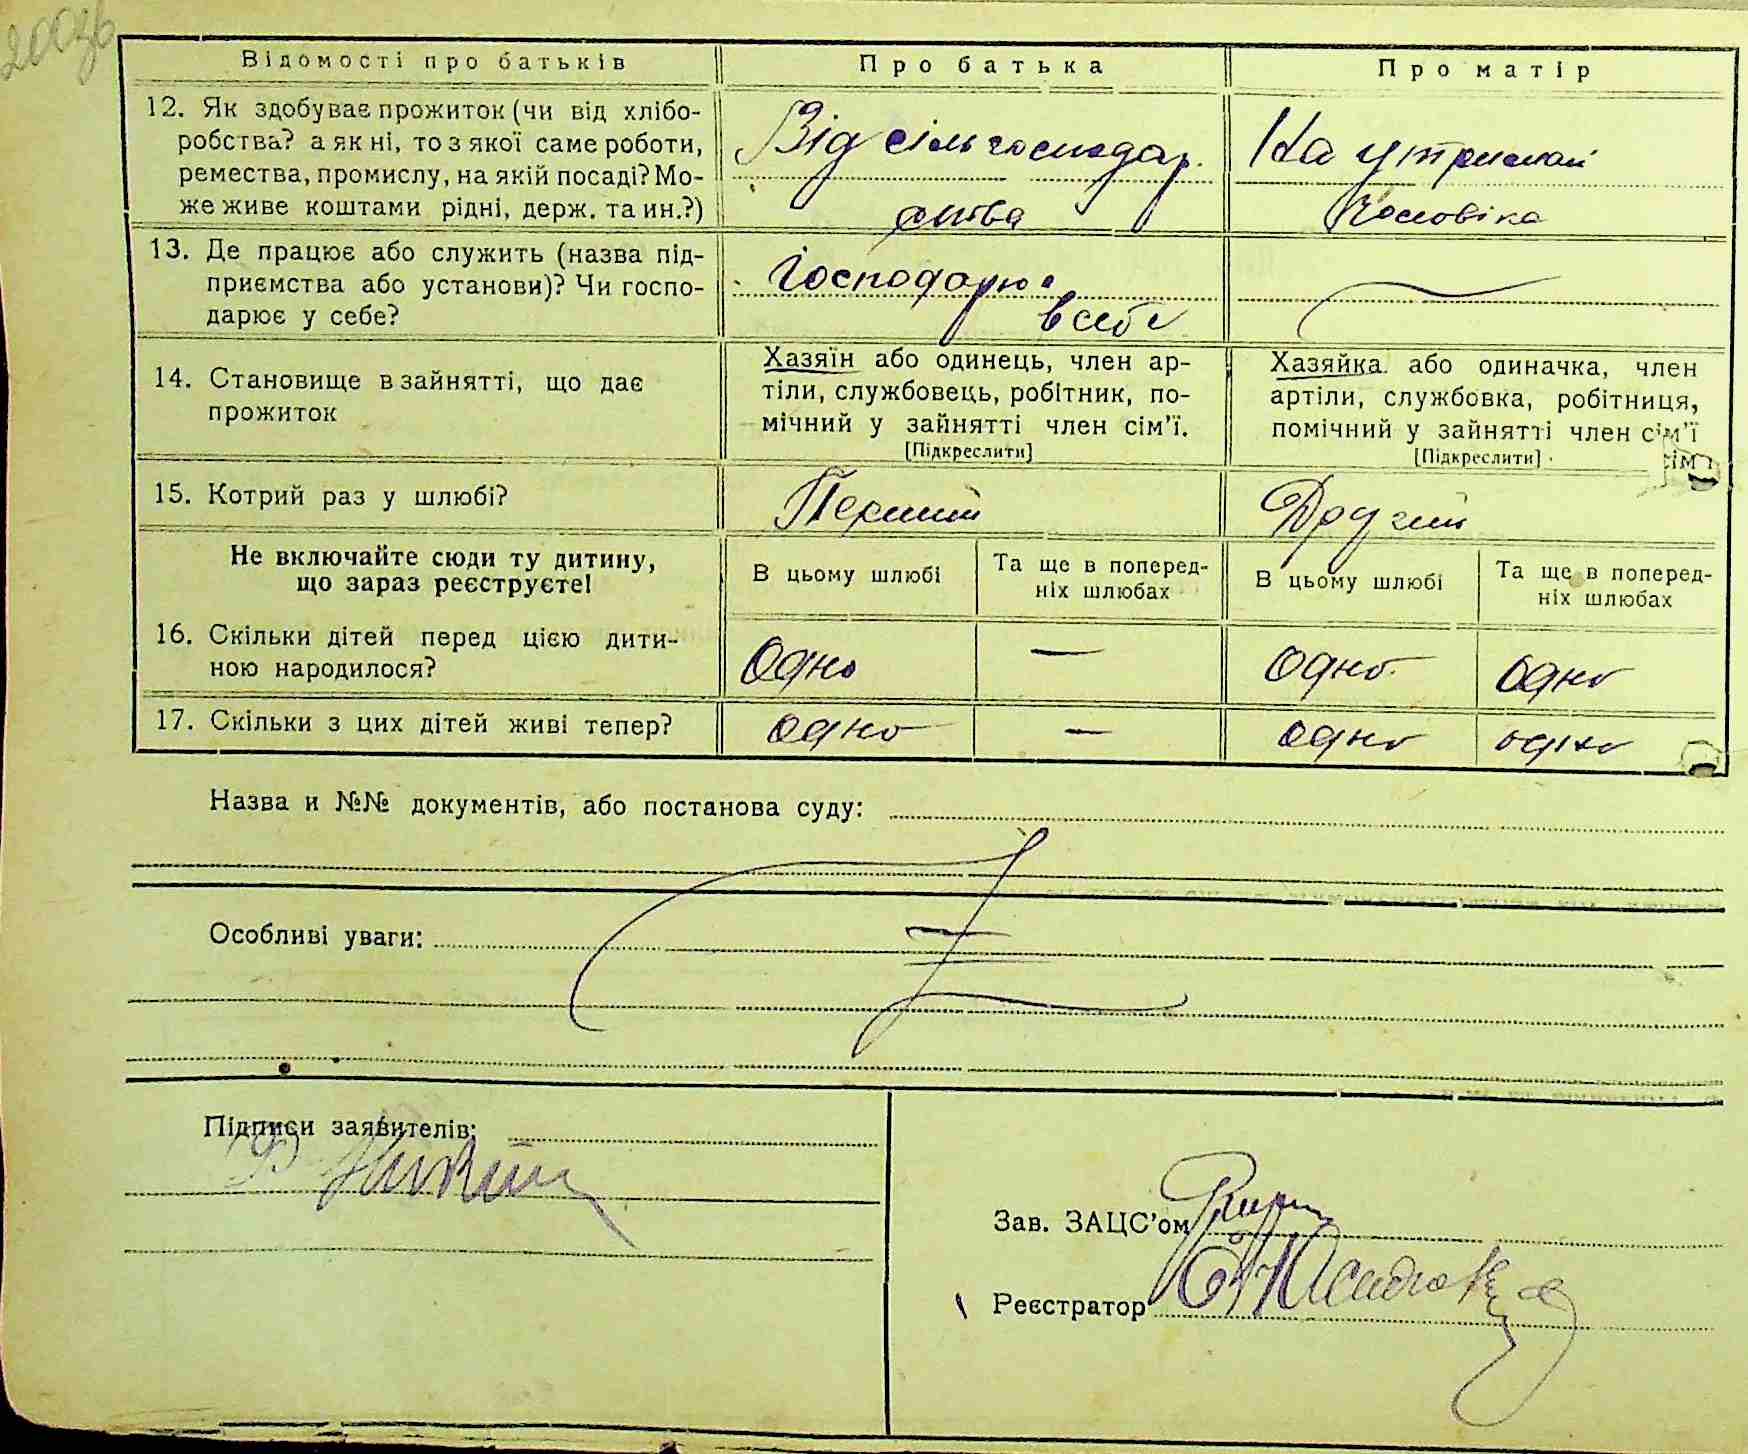 Відомості про батьків
Про батька
Про матір
12. Як здобуває прожиток (чи від хлібо-
робства? а як ні, то з якої саме роботи,
ремества, промислу, на якій посаді? Мо-
же живе коштами рідні, держ. та ин.?)
Від сільгосподар.
ства
На утриман
Чоловіка
13. Де працює або служить (назва під-
приємства або установи)? Чи госпо-
дарює у себе?
Господарює
в себе
—
14. Становище в зайнятті, що дає
прожиток
Хазяїн або одинець, член ар-
тіли, службовець, робітник, по-
мічний у зайнятті член сім'ї.
[Підкреслити]
Хазяйка або одиначка, член
артіли, службовка, робітниця,
помічний у зайнятті член сім'ї
[Підкреслити]
15. Котрий раз у шлюбі?
Перший
Другий
Не включайте сюди ту дитину,
що зараз реєструєте!
В цьому шлюбі
Та ще в поперед-
ніх шлюбах
В цьому шлюбі
Та ще в поперед-
ніх шлюбах
16. Скільки дітей перед цією дити-
ною народилося?
Одно
—
Одно
Одно
17. Скільки з цих дітей живі тепер?
одно
—
одно
одно
Назва и №№ документів, або постанова суду:
Особливі уваги:
Підписи заявителів:
Зав. ЗАЦС'ом
Реєстратор